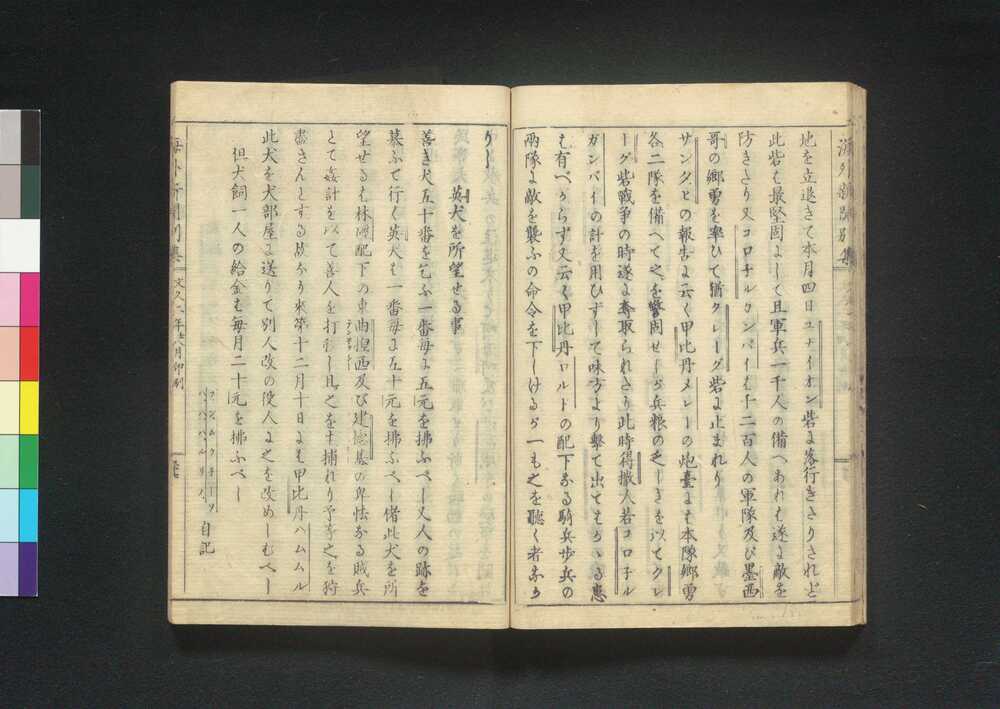 地を立退きて本月四日ユナイオン砦に落行きたりされど
此砦も最堅固にして且軍兵一千人の備へあれも遂に敵を
防ぎたり又コロナルカンバイも千二百人の軍隊及び墨西
哥の郷勇を率ひて猶クレーグ砦に止まれり
サンタヒの報告に云く甲比丹メレーの炮臺にも本隊郷勇
各二隊を備へて之を警固せしが兵粮の乏しきを以てクレ
ーグ砦戦争の時遂に奪取られたり此時得撒人若コロ子ル
ガンバイの計を用ひずして味方より撃て出てもかゝる患
も有べからず又云く甲比丹ロルトの配下なる騎兵歩兵の
兩隊に敵を襲ふの命令を下しけるが一も之を聴く者なか
りし
英犬を所望せる事
善き犬五十番を乞ふ一番毎に五元を拂ふべし又人の跡を
慕ふて行く英犬も一番毎に五十元を拂ふべし偖此犬を所
望せるも林㘝配下の東
及び
の卑怯なる賊兵
とて姦計を以て善人を打
し且之を捕れり予等之を狩
盡さんとする故なり來第十二月十日にも甲比丹ハムムル
此犬を犬部屋に送りて別人改の役人に之を改めしむべし
但犬飼一人の給金も毎月二十元を拂ふべし
自記
海外新聞別集
文久二年
八月印刻